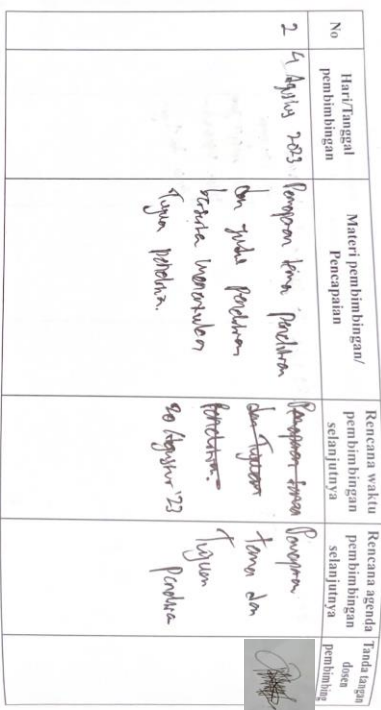 No
Hari/Tanggal
pembimbingan
Materi pembimbingan/
Pencapaian
Rencana waktu
pembimbingan
selanjutnya
Rencana agenda
pembimbingan
selanjutnya
Tanda tangan
dosen
pembimbing
2
4 Agustus 2023
Pemaparan tema penelitian
dan judul penelitian
beserta menentukan
Tujuan penelitian.
Pemaparan
dan Tujuan
Penelitian.
20 Agustus '23
Pemaparan
tema dan
Tujuan
Penelitian